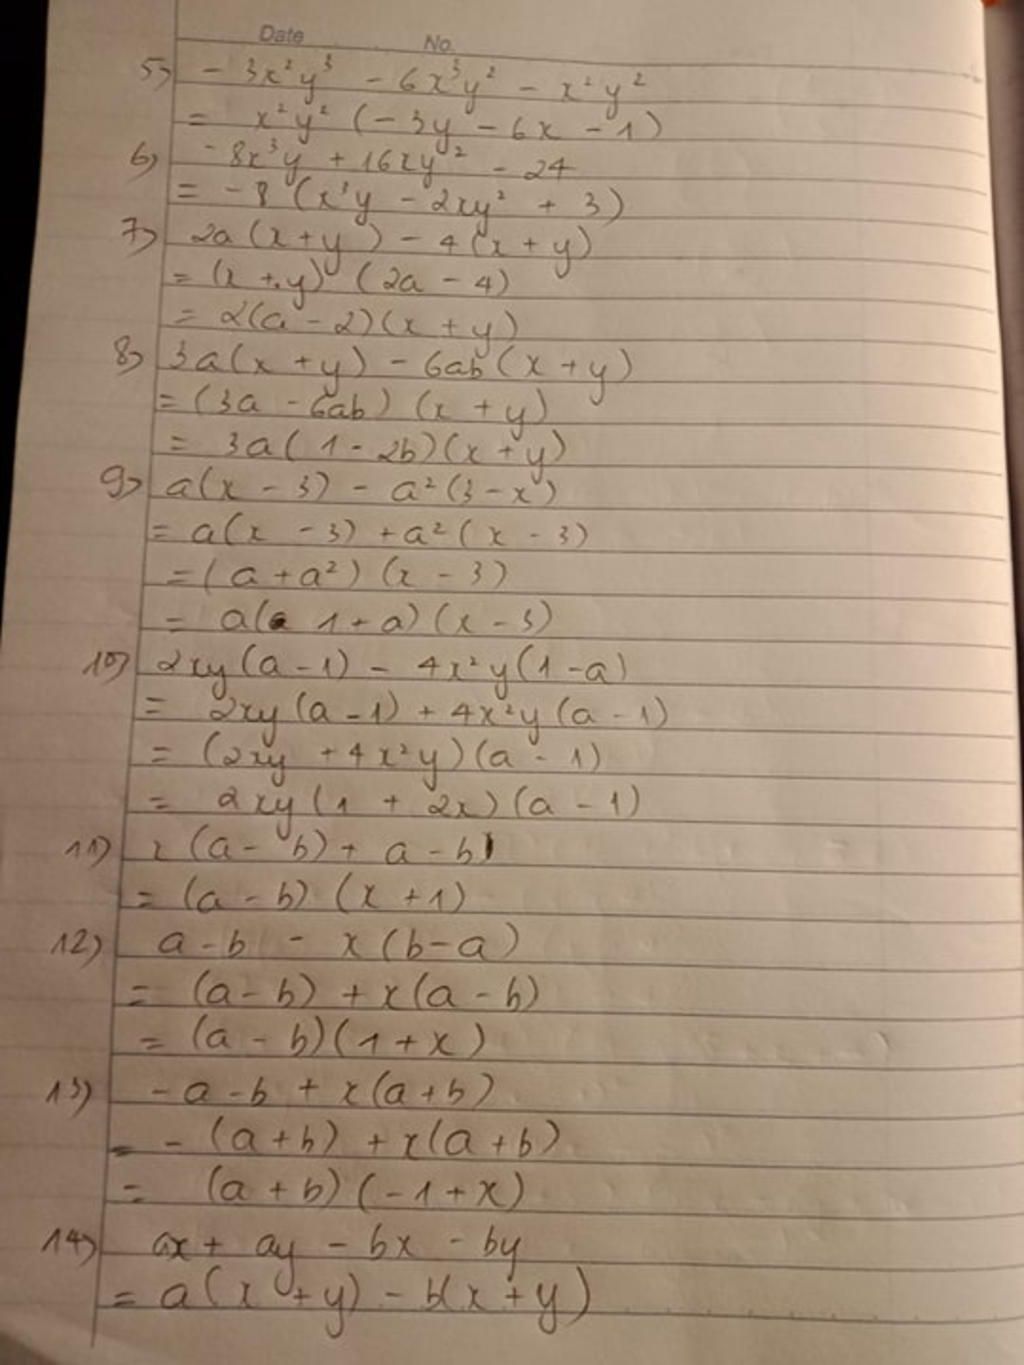 Date No.
5) - 3x²y³ - 6x³y² - x²y²
= x²y² (-3y - 6x - 1)
6) -8x³y + 16xy² - 24
= -8 (x³y - 2xy² + 3)
7) 2a(x+y) - 4(x+y)
= (x+y) (2a - 4)
= 2(a-2)(x+y)
8) 3a(x+y) - 6ab(x+y)
= (3a - 6ab) (x+y)
= 3a(1-2b)(x+y)
9) a(x-3) - a²(3-x)
= a(x-3) + a²(x-3)
= (a+a²) (x-3)
= a(1+a)(x-3)
10) 2xy(a-1) - 4x²y(1-a)
= 2xy(a-1) + 4x²y(a-1)
= (2xy + 4x²y)(a-1)
= 2xy(1 + 2x)(a-1)
11) x(a-b) + a-b
= (a-b) (x+1)
12) a-b - x(b-a)
= (a-b) + x(a-b)
= (a-b)(1+x)
13) -a-b + x(a+b)
= - (a+b) + x(a+b)
= (a+b)(-1+x)
14) ax + ay - bx - by
= a(x+y) - b(x+y)